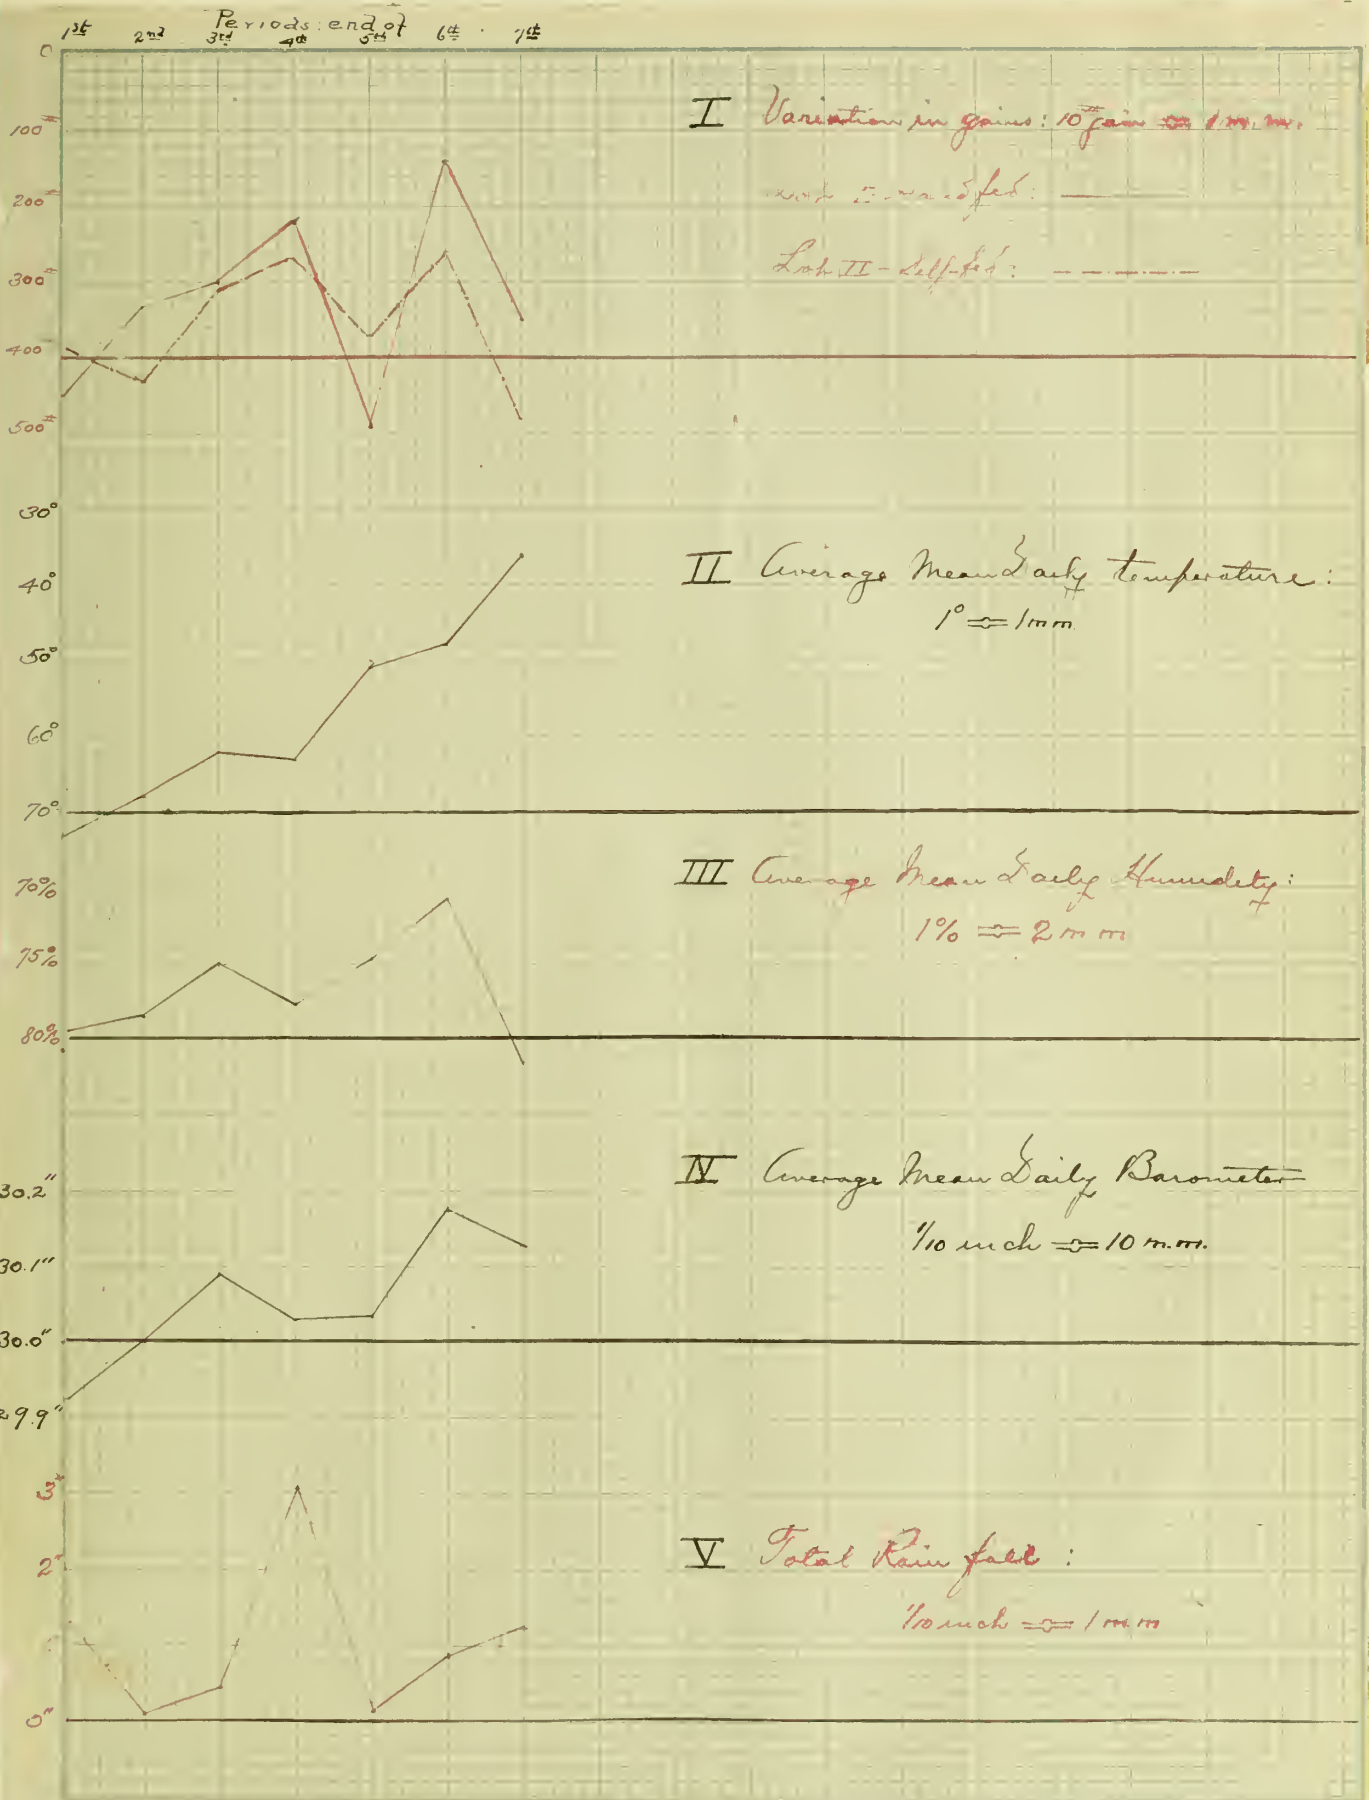 Periods: end of
1st 2nd 3rd 4th 5th 6th 7th
0
100#
200#
300#
400
500#
I Variation in gains: 10# gain ≎ 1 m.m.
fed:
Lot II - Self-fed:
30°
40°
50°
60°
70°
II Average Mean Daily temperature:
1° ≎ 1mm
70%
75%
80%
III Average Mean Daily Humidity:
1% ≎ 2 mm
30.2"
30.1"
30.0"
29.9"
IV Average Mean Daily Barometer
1/10 inch ≎ 10 m.m.
3"
2"
0"
V Total Rain fall:
1/10 inch ≎ 1 mm